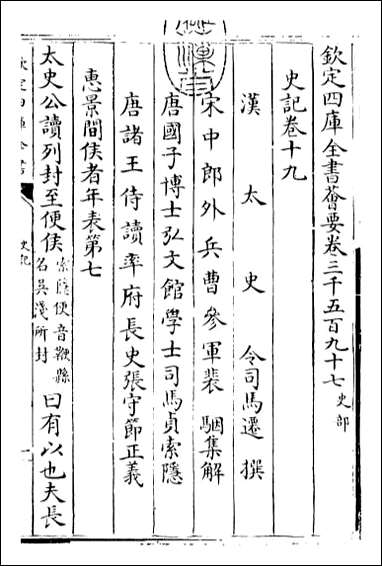 欽定四庫全書薈要卷三千五百九十七 史部
史記卷十九
漢 太 史 令司馬遷 撰
宋中郎外兵曹參軍裴 駰集解
唐國子博士弘文館學士司馬貞索隱
唐諸王侍讀率府長史張守節正義
惠景間侯者年表第七
太史公讀列封至便侯 索隱便音鞭縣名吳淺所封 曰有以也夫長
史記